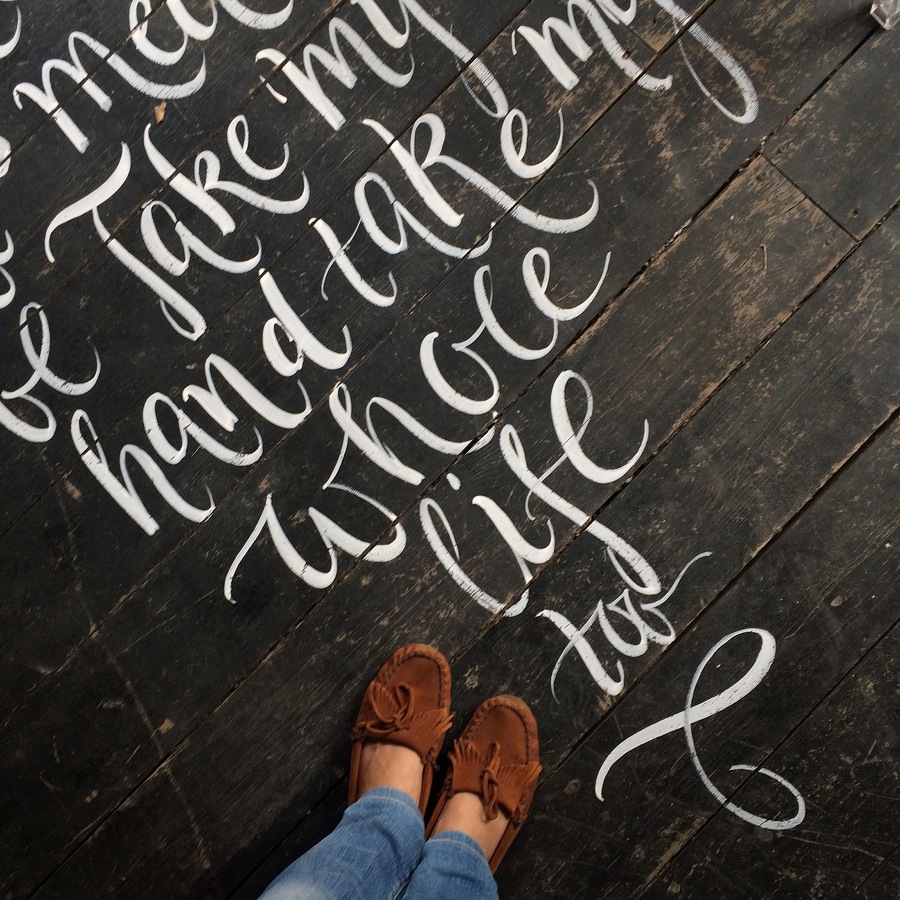 be Take my
hand take my
whole
life
too